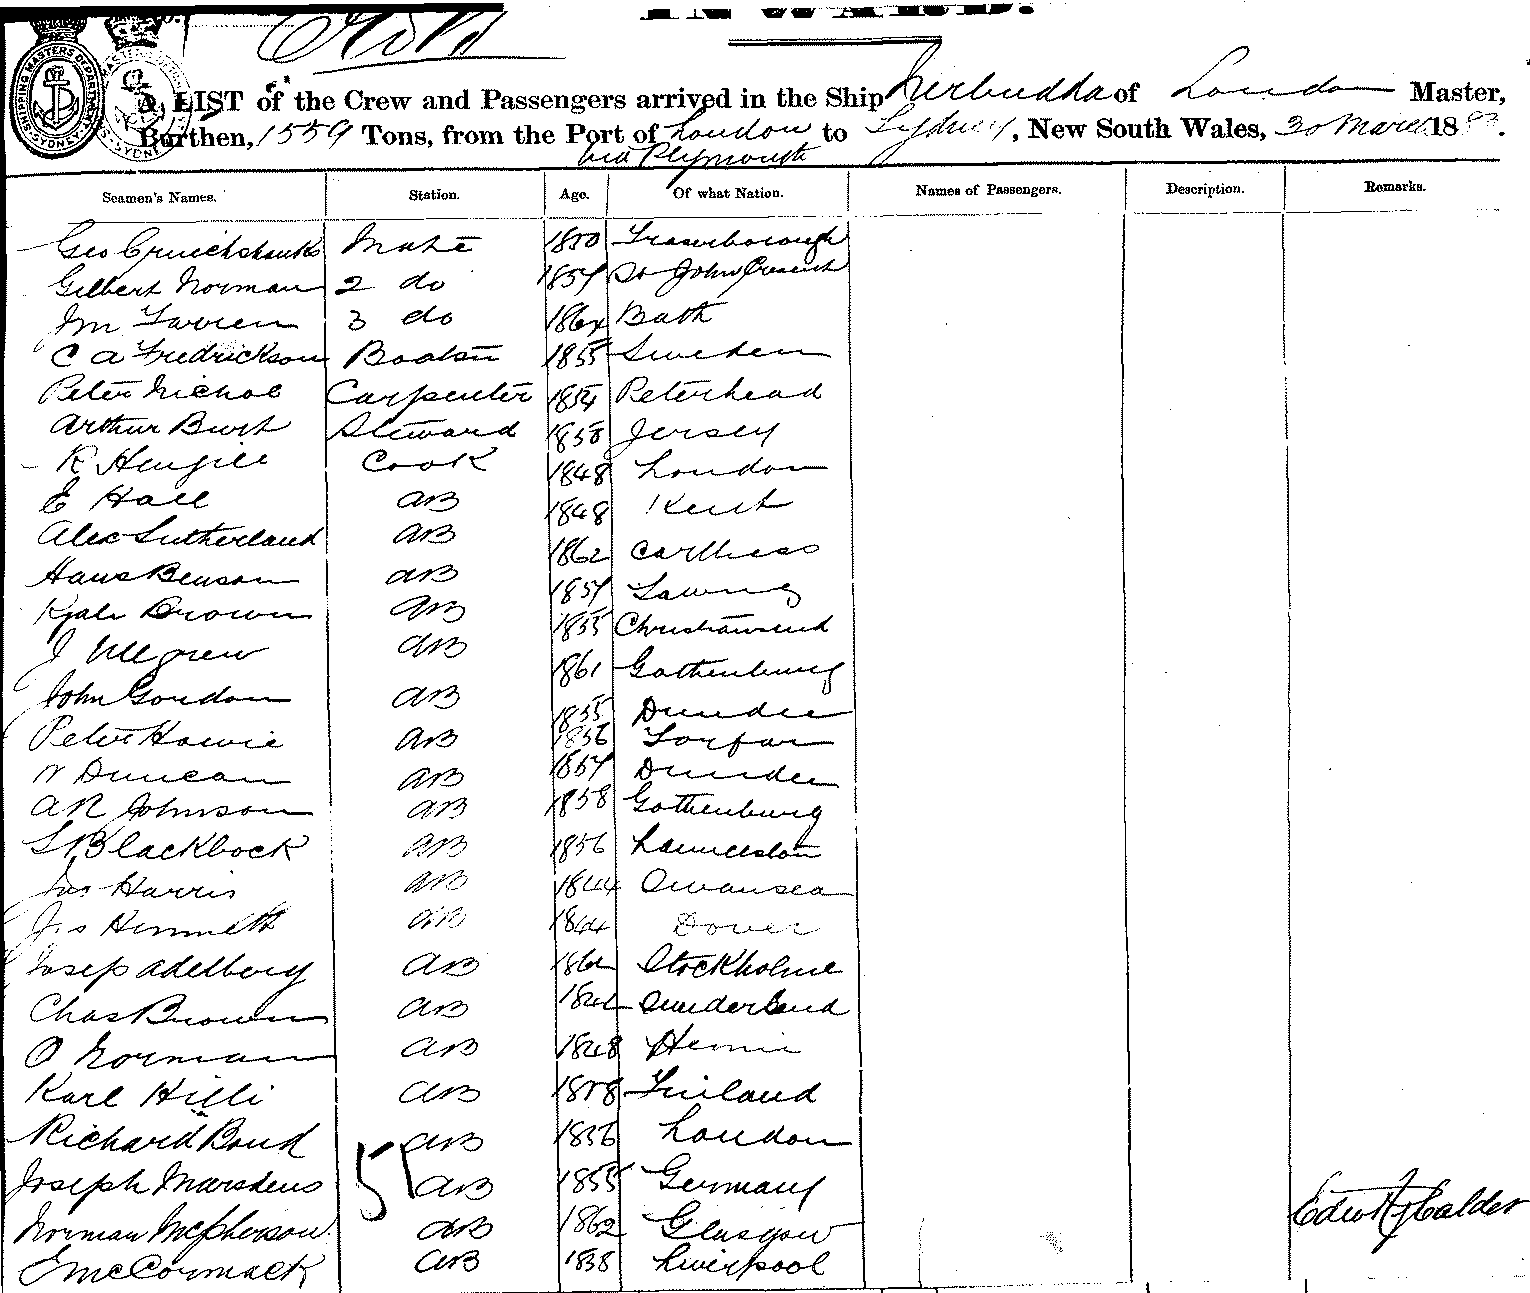 INWARD.
A LIST of the Crew and Passengers arrived in the Ship Nerbudda of London Master,
Burthen, 1559 Tons, from the Port of London to Sydney, New South Wales, 30 March 1883.
via Plymouth
Seamen's Names. Station. Age. Of what Nation. Names of Passengers. Description. Remarks.
Geo Cruickshanks Mate 1850 Fraserborough
Gilbert Norman 2 do 1857 St John
3 do 1864 Bath
C A Fredrickson Boatsn 1855 Sweden
Peter Nichol Carpenter 1854 Peterhead
Arthur Burt Steward 1858 Jersey
R Cook 1848 London
E Hall AB 1848 Kent
Alex Sutherland AB 1862 Caithness
Hans Benson AB 1857
Brown AB 1855
J McGrew AB 1861 Gothenburg
John Gordon AB 1855 Dundee
Peter Howie AB 1856 Forfar
W Duncan AB 1857 Dundee
A R Johnson AB 1858 Gothenburg
S Blackbock AB 1856 Launceston
Jas Harris AB 1844 Swansea
Jas Kimmett AB 1864 Dover
Josep Adelberg AB Stockholme
Chas Brown AB Sunderland
O Norman AB 1848
Karl Hilli AB 1858 Finland
Richard Bond AB 1856 London
Joseph Marskens AB 1855 Germany
Norman McPherson AB 1862 Glasgow
E McCormack AB 1838 Liverpool
51
Edw H Calder